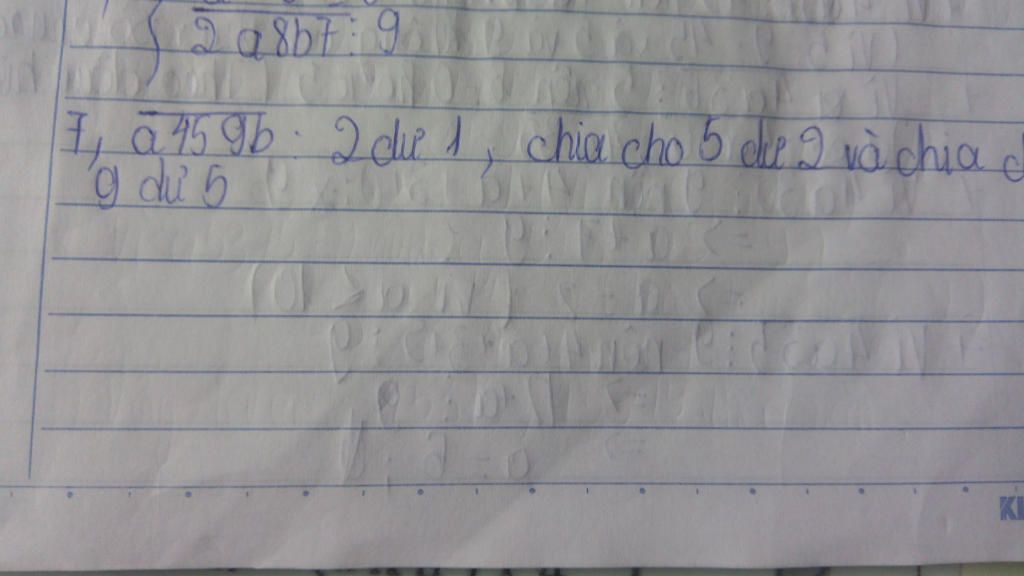 2a8b7 : 9
7, a459b : 2 dư 1, chia cho 5 dư 2 và chia
9 dư 5